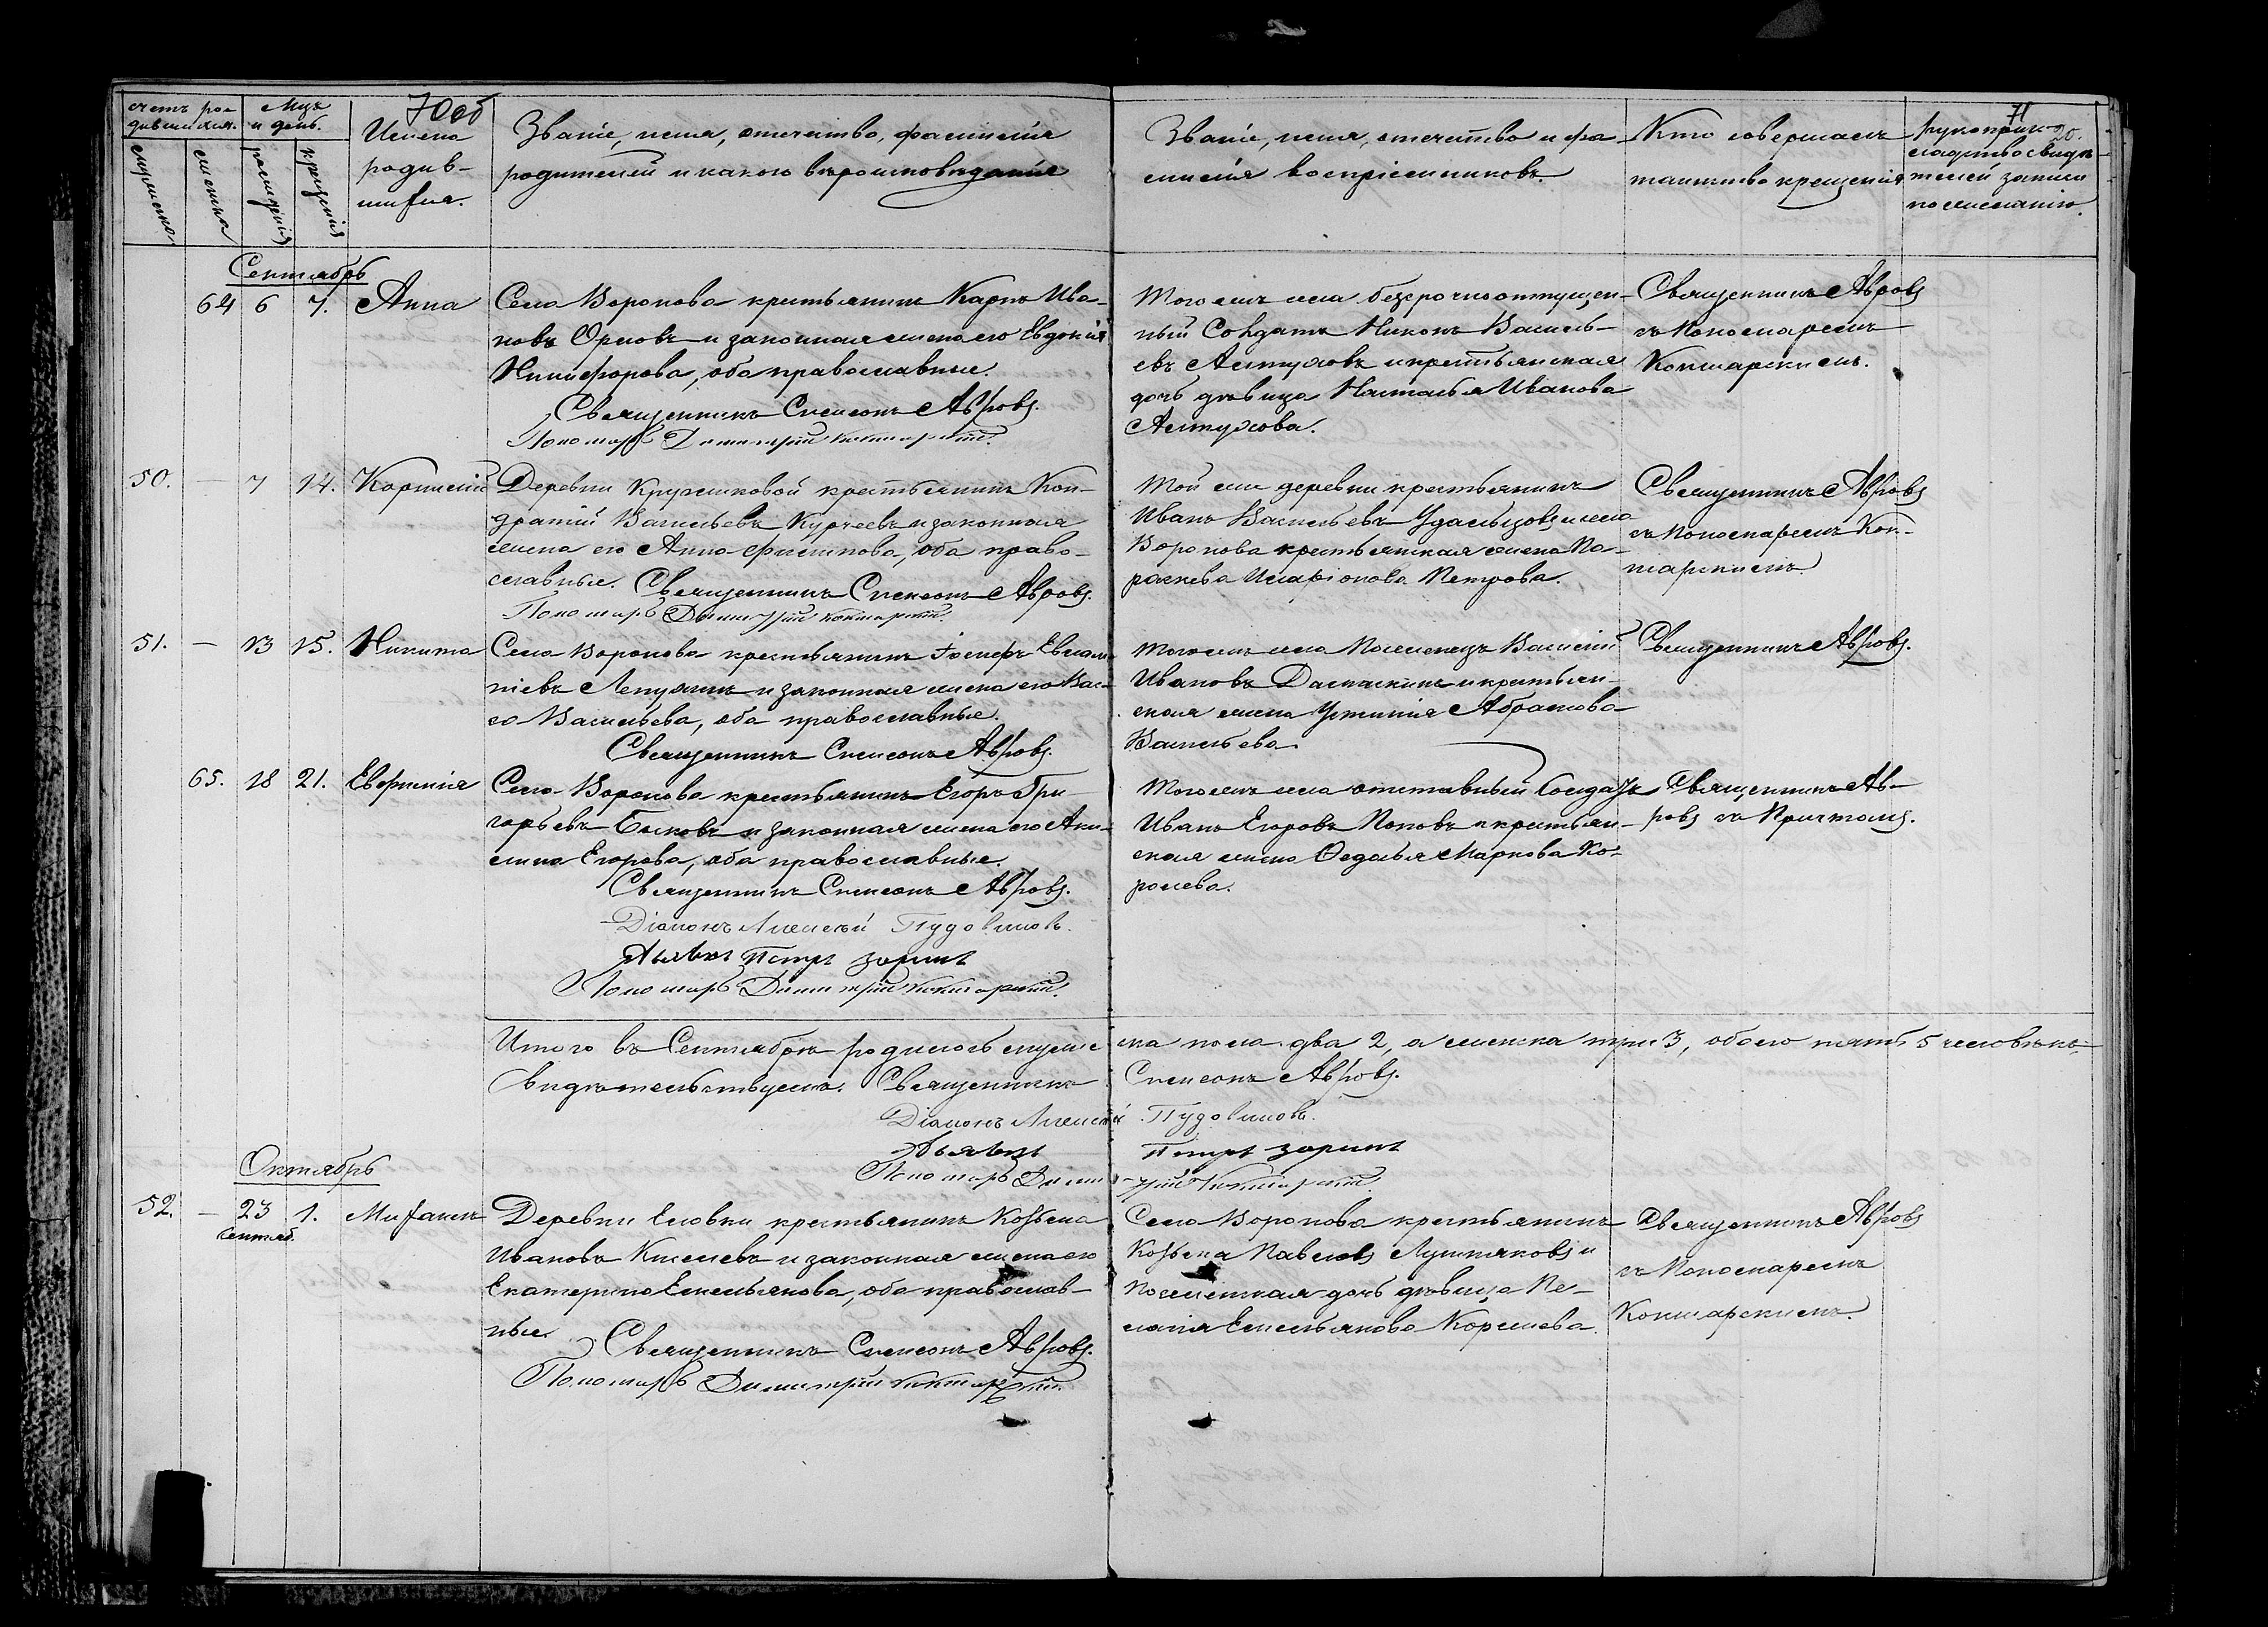 70 об
71
20.
счетъ ро-
дившихся.
Мцъ
и день.
Имена
родив-
шихся.
Званіе, имя, отечество, фамилія
родителей и какого вѣроисповѣданія
Званіе, имя, отечество и фа-
милія воспріемниковъ.
Кто совершалъ
таинство крещенія
рукоприк-
ладство свидѣ-
телей записи
по желанію.
мужеска
женска
рожденія
крещенія
Сентябрь
64 6 7. Анна
Села Воронова крестьянинъ Карпъ Ива-
новъ Орловъ и законная жена его Евдокія
Никифорова, оба православные.
Священникъ Симеонъ Авровъ.
Пономарь Димитрій Коктарскій.
Того жъ села безсрочноотпущен-
ный Солдатъ Никонъ Василь-
евъ Алтуховъ и крестьянская
дочь дѣвица Наталья Иванова
Алтухова.
Священникъ Авровъ
съ Пономаремъ
Коктарскимъ.
50. — 7 14. Корнилій
Деревни Кругликовой крестьянинъ Кон-
дратій Васильевъ Курчеевъ и законная
жена его Анна Филипова, оба право-
славные. Священникъ Симеонъ Авровъ.
Пономарь Димитрій Коктарскій.
Той же деревни крестьянинъ
Иванъ Васильевъ Удальцовъ и села
Воронова крестьянская жена Па-
раскева Иларіонова Петрова.
Священникъ Авровъ
съ Пономаремъ Кок-
тарскимъ.
51. — 13 15. Никита
Села Воронова крестьянинъ Іосифъ Евлам-
піевъ Лепухинъ и законная жена его Вас-
са Васильева, оба православные.
Священникъ Симеонъ Авровъ.
Того жъ села Поселенецъ Василій
Ивановъ Дамаскинъ и крестьян-
ская жена Устинія Абрамова
Васильева.
Священникъ Авровъ.
65. 18 21. Евфимія
Села Воронова крестьянинъ Егоръ Гри-
горьевъ Быковъ и законная жена его Аки-
лина Егорова, оба православные.
Священникъ Симеонъ Авровъ.
Діаконъ Алексѣй Пудовиковъ.
Дьячокъ Петръ Зоринъ
Пономарь Димитрій Коктарскій.
Того жъ села отставный Солдатъ
Иванъ Егоровъ Поповъ и крестьян-
ская жена Ѳедосья Маркова Ко-
ролева.
Священникъ Ав-
ровъ съ Причтомъ.
Итого въ Сентябрѣ родилось мужес-
ка пола два 2, а женска три 3, обоего пять 5 человѣкъ,
свидѣтельствуемъ. Священникъ Симеонъ Авровъ.
Діаконъ Алексѣй Пудовиковъ.
Дьячокъ Петръ Зоринъ
Пономарь Димитрій Коктарскій.
Октябрь
52. — 23 1. Михаилъ
Сентяб.
Деревни Еловки крестьянинъ Козьма
Ивановъ Киселевъ и законная жена его
Екатерина Емельянова, оба православ-
ные. Священникъ Симеонъ Авровъ.
Пономарь Димитрій Коктарскій.
Села Воронова крестьянинъ
Козьма Павловъ Лушниковъ и
Поселенская дочь дѣвица Пе-
лагія Емельянова Корнева.
Священникъ Авровъ
съ Пономаремъ
Коктарскимъ.